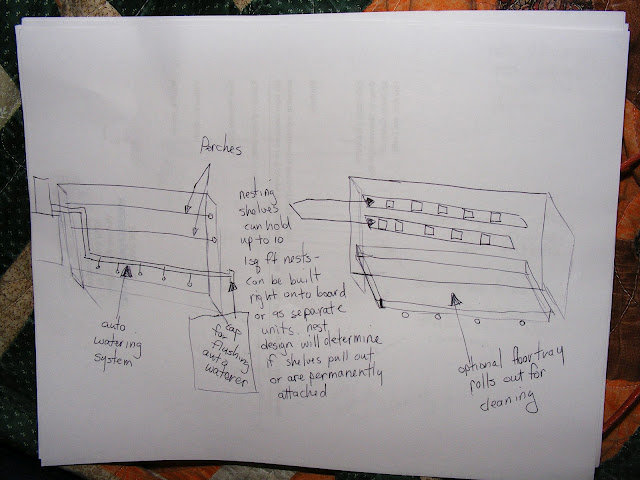 Perches
nesting
shelves
can hold
up to 10
1sq ft nests -
can be built
right onto board
or as separate
units. nest
design will determine
if shelves pull out
or are permanently
attached
auto
watering
system
cap
for
flushing
auto
waterer
optional floor tray
rolls out for
cleaning